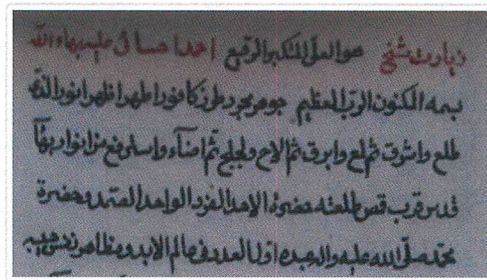 زیارت شیخ هو العلی المتکبر الرفیع احمد احسائی علیه بهاء الله
بسمه المکنون الرب العظیم جوهر مجرد طرز کافورا طهرا ظهرا نور الذی
طلع واشرق ثم لع وابرق ثم الاح ولجلج ثم اضآء واستر فع من انوار بهآء
قدس قرب طلعته حضرة الاحد الفرد الواحد المعتمد وحضرة
محمد صلی الله علیه والعبده اولا العدد فی عالم الابد ومظاهر نفس